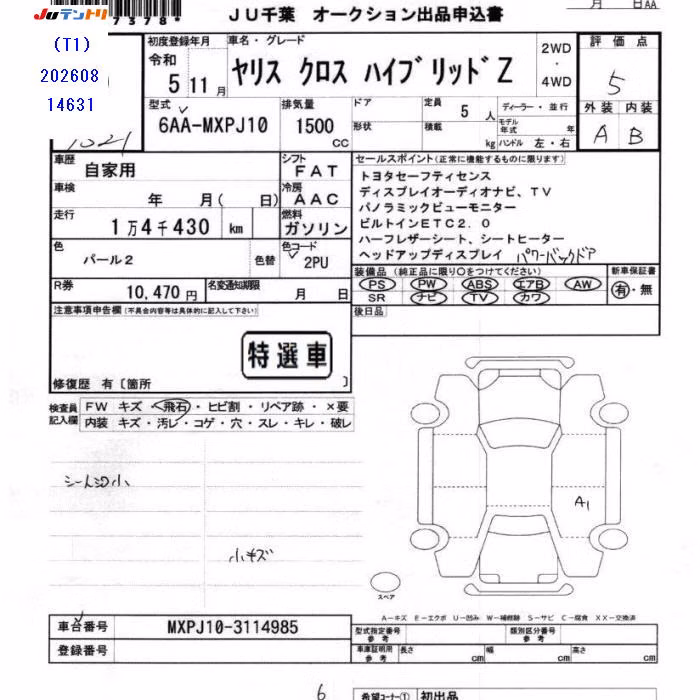 JUテントリ
7378
JU千葉 オークション出品申込書
月 日AA
(T1)
202608
14631
1021
初度登録年月
令和
5 11 月
車名・グレード
ヤリス クロス ハイブリッド Z
2WD
・
4WD
評価点
5
外装 内装
A B
型式
6AA-MXPJ10
排気量
1500 CC
ドア
形状
定員
5 人
積載
kg
ディーラー・並行
モデル年式 年
ハンドル 左・右
車歴
自家用
シフト
FAT
車検
年 月( 日)
冷房
AAC
走行
1万4千430 km
燃料
ガソリン
色
パール2
色替
色コード
2PU
R券
10,470円
名変通知期限
月 日
セールスポイント(正常に機能するものに限ります)
トヨタセーフティセンス
ディスプレイオーディオナビ、TV
パノラミックビューモニター
ビルトインETC2.0
ハーフレザーシート、シートヒーター
ヘッドアップディスプレイ パワーバックドア
装備品(純正品に限り○をつけてください)
PS PW ABS エアB AW
SR ナビ TV カワ
新車保証書
有・無
後日品
注意事項申告欄(不具合内容等は具体的に記入して下さい)
特選車
修復歴 有〔箇所 〕
検査員記入欄
FW キズ・飛石・ヒビ割・リペア跡・×要
内装 キズ・汚レ・コゲ・穴・スレ・キレ・破レ
シートシワ小
小キズ
A1
スペア
A-キズ E-エクボ U-凹み W-補修跡 S-サビ C-腐食 XX-交換済
車台番号
MXPJ10-3114985
登録番号
型式指定番号 参考
類別区分番号 参考
車庫証明用 参考
長さ cm
幅 cm
高さ cm
6
希望コーナー① 初出品